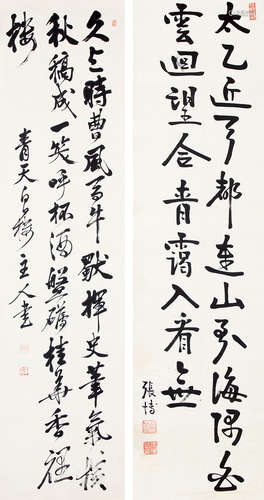 太乙近天都連山到海隅白
雲迴望合青靄入看無
張琦
久與時曹風馬牛獸揮史筆氣橫
秋稿成一笑呼杯酒盤礴桂華香裡
樓
青天白樓主人書